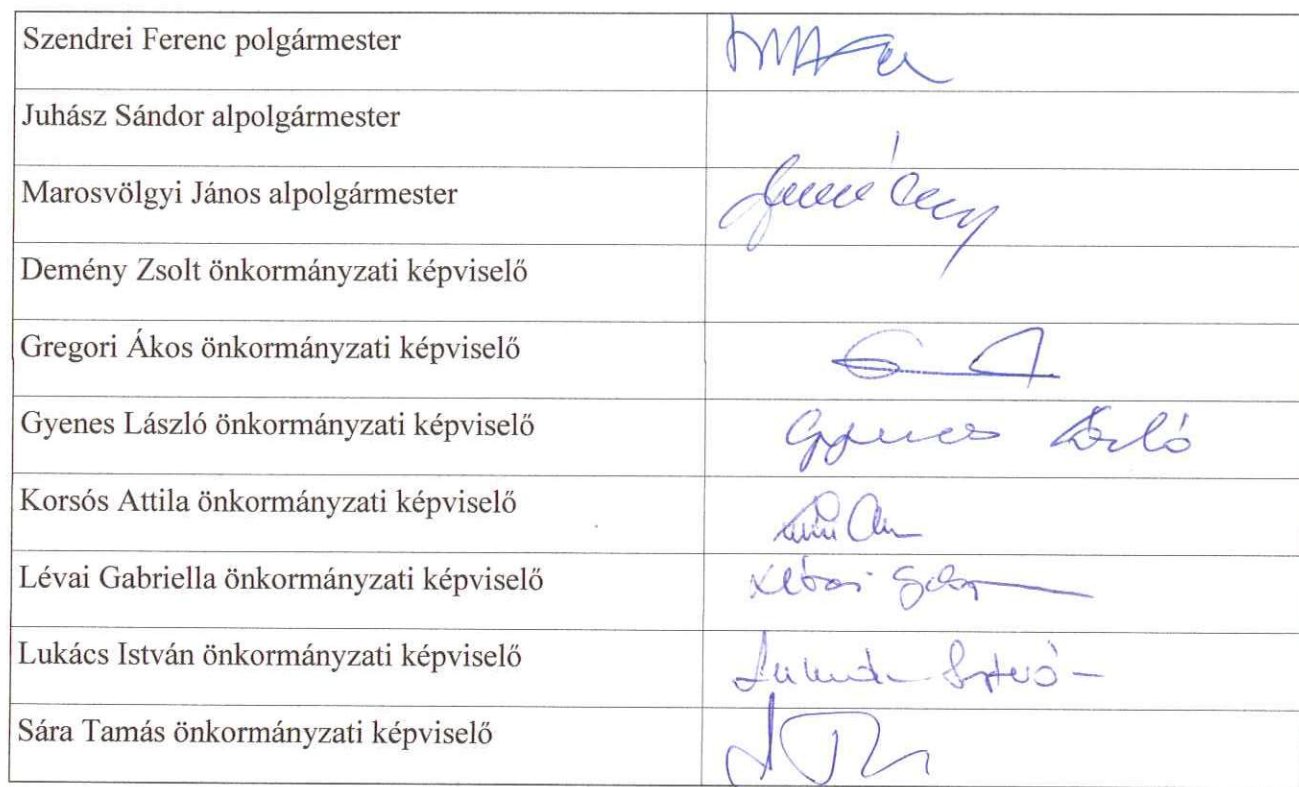 Szendrei Ferenc polgármester
Juhász Sándor alpolgármester
Marosvölgyi János alpolgármester
Demény Zsolt önkormányzati képviselő
Gregori Ákos önkormányzati képviselő
Gyenes László önkormányzati képviselő
Korsós Attila önkormányzati képviselő
Lévai Gabriella önkormányzati képviselő
Lukács István önkormányzati képviselő
Sára Tamás önkormányzati képviselő